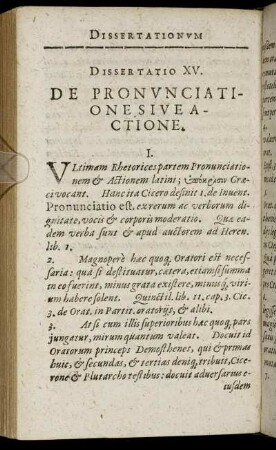 DISSERTATIONVM
DISSERTATIO XV.
DE PRONVNCIATI-
ONE SIVE A-
CTIONE.
I.
VLtimam Rhetorices partem Pronunciatio-
nem & Actionem latini; Græ-
ci vocant. Hanc ita Cicero definit 1. de Invent.
Pronunciatio est. ex rerum ac verborum di-
gnitate, vocis & corporis moderatio. Quæ ea-
dem verba sunt & apud auctorem ad Heren.
lib. 1.
2. Magnoperè hæc quoq, Oratori est neces-
saria: quâ si destituatur, cætera, etiamsi summa
in eo fuerint, minus grata existere, minusq́, vi-
rium habere solent. Quinctil. lib. 11. cap. 3. Cic.
3. de Orat. in Partit. oratorijs, & alibi.
3. At si cum illis superioribus hæc quoq, pars
jungatur, mirum quantum valeat. Docuit id
Oratorum princeps Demosthenes, qui & primas
huic, & secundas, & tertias deniq, tribuit, Cice-
rone & Plutarcho testibus: docuit adversarius e-
iusdem